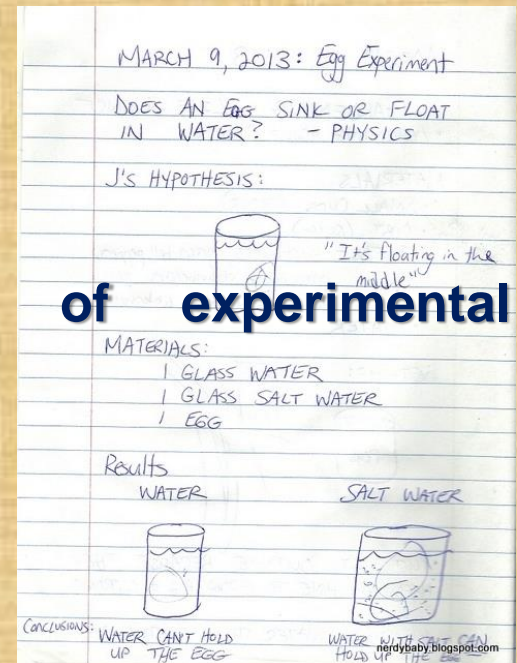 MARCH 9, 2013: Egg Experiment
DOES AN EGG SINK OR FLOAT
IN WATER? - PHYSICS
J'S HYPOTHESIS:
"It's floating in the
middle"
of experimental
MATERIALS:
1 GLASS WATER
1 GLASS SALT WATER
1 EGG
Results
WATER SALT WATER
CONCLUSIONS: WATER CAN'T HOLD
UP THE EGG
WATER WITH SALT CAN
HOLD UP THE EGG
nerdybaby.blogspot.com